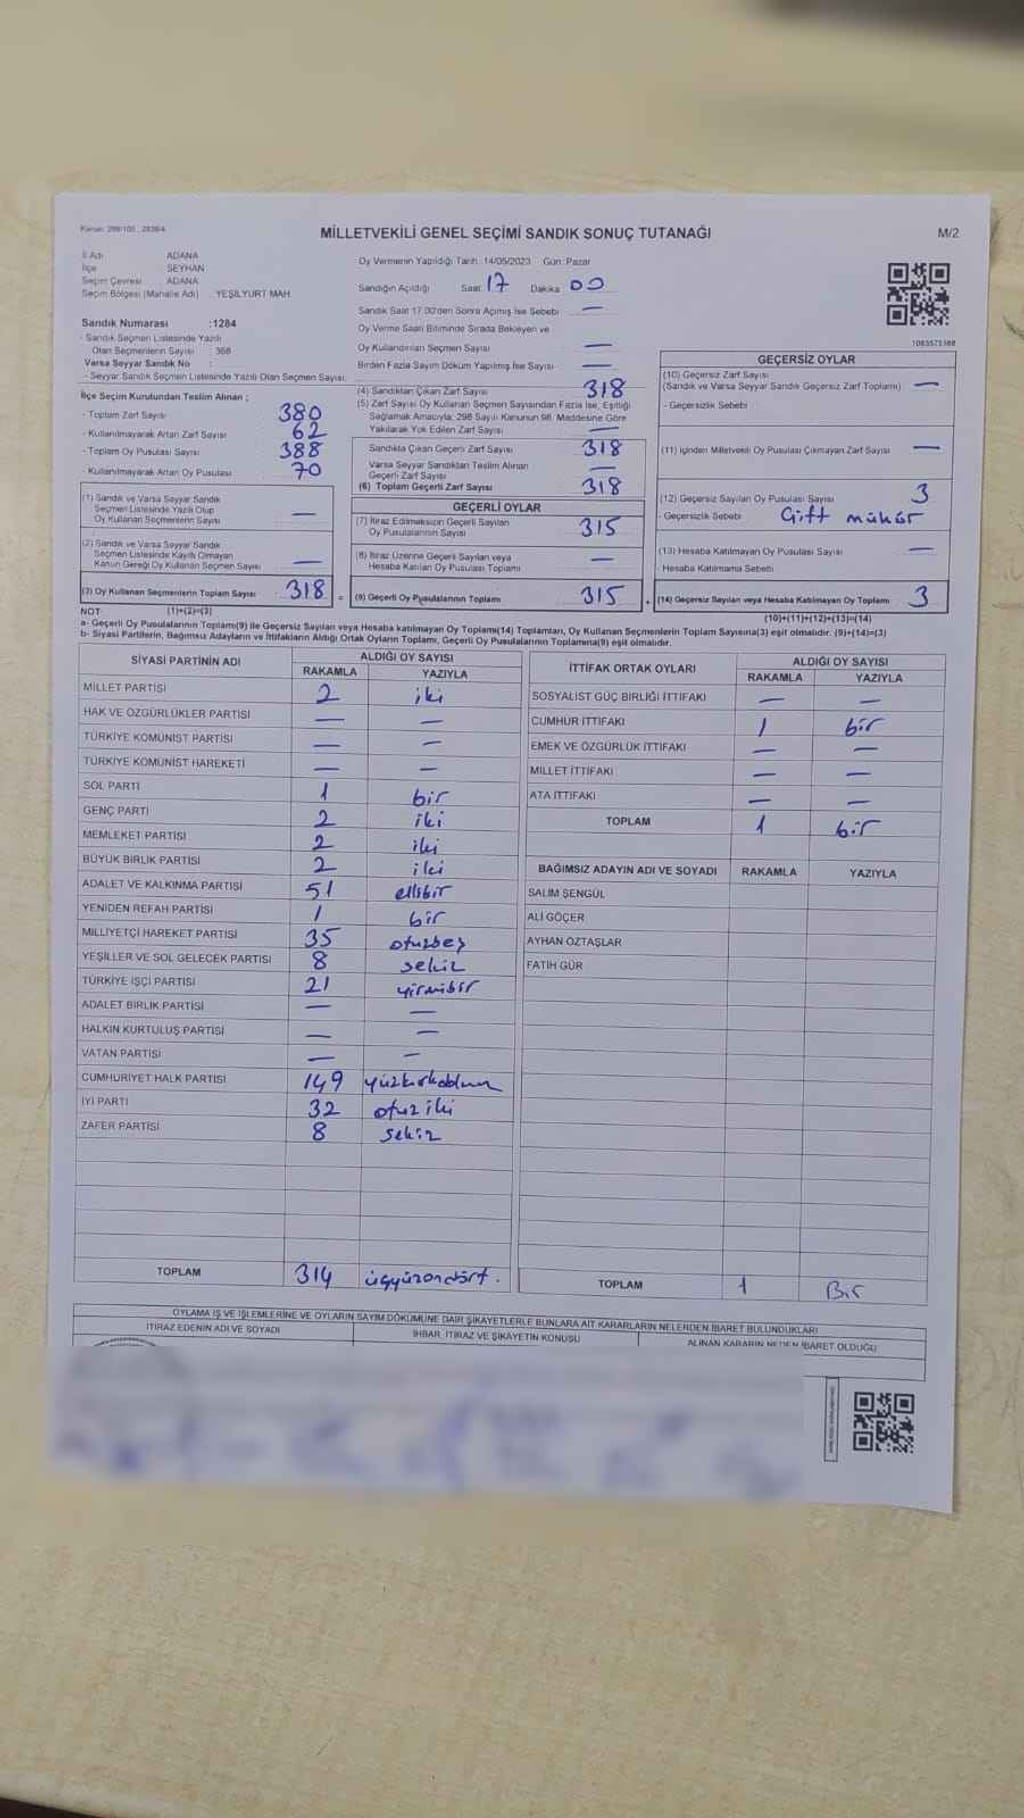 Kanun: 298/105 , 2839/4
MİLLETVEKİLİ GENEL SEÇİMİ SANDIK SONUÇ TUTANAĞI
M/2
İl Adı ADANA
İlçe SEYHAN
Seçim Çevresi ADANA
Seçim Bölgesi (Mahalle Adı) : YEŞİLYURT MAH.
Sandık Numarası :1284
- Sandık Seçmen Listesinde Yazılı
Olan Seçmenlerin Sayısı : 368
Varsa Seyyar Sandık No :
- Seyyar Sandık Seçmen Listesinde Yazılı Olan Seçmen Sayısı:
İlçe Seçim Kurulundan Teslim Alınan ;
- Toplam Zarf Sayısı 380
- Kullanılmayarak Artan Zarf Sayısı 62
- Toplam Oy Pusulası Sayısı 388
- Kullanılmayarak Artan Oy Pusulası 70
(1) Sandık ve Varsa Seyyar Sandık
Seçmen Listesinde Yazılı Olup
Oy Kullanan Seçmenlerin Sayısı —
(2) Sandık ve Varsa Seyyar Sandık
Seçmen Listesinde Kayıtlı Olmayan
Kanun Gereği Oy Kullanan Seçmen Sayısı —
(3) Oy Kullanan Seçmenlerin Toplam Sayısı 318 =
Oy Vermenin Yapıldığı Tarih : 14/05/2023 Gün: Pazar
Sandığın Açıldığı Saat: 17 Dakika: 00
Sandık Saat 17.00'den Sonra Açılmış İse Sebebi —
Oy Verme Saati Bitiminde Sırada Bekleyen ve
Oy Kullandırılan Seçmen Sayısı —
Birden Fazla Sayım Döküm Yapılmış İse Sayısı —
(4) Sandıktan Çıkan Zarf Sayısı 318
(5) Zarf Sayısı Oy Kullanan Seçmen Sayısından Fazla İse, Eşitliği
Sağlamak Amacıyla; 298 Sayılı Kanunun 98. Maddesine Göre
Yakılarak Yok Edilen Zarf Sayısı —
Sandıkta Çıkan Geçerli Zarf Sayısı 318
Varsa Seyyar Sandıktan Teslim Alınan
Geçerli Zarf Sayısı —
(6) Toplam Geçerli Zarf Sayısı 318
GEÇERLİ OYLAR
(7) İtiraz Edilmeksizin Geçerli Sayılan
Oy Pusulalarının Sayısı 315
(8) İtiraz Üzerine Geçerli Sayılan veya
Hesaba Katılan Oy Pusulası Toplamı —
(9) Geçerli Oy Pusulalarının Toplamı 315 +
1083573188
GEÇERSİZ OYLAR
(10) Geçersiz Zarf Sayısı
(Sandık ve Varsa Seyyar Sandık Geçersiz Zarf Toplamı) —
- Geçersizlik Sebebi :
(11) İçinden Milletvekili Oy Pusulası Çıkmayan Zarf Sayısı —
(12) Geçersiz Sayılan Oy Pusulası Sayısı 3
- Geçersizlik Sebebi Çift mühür
(13) Hesaba Katılmayan Oy Pusulası Sayısı —
- Hesaba Katılmama Sebebi
(14) Geçersiz Sayılan veya Hesaba Katılmayan Oy Toplamı 3
NOT (1)+(2)=(3) (10)+(11)+(12)+(13)=(14)
a- Geçerli Oy Pusulaları Toplamı(9) ile Geçersiz Sayılan veya Hesaba katılmayan Oy Toplamı(14) Toplamları, Oy Kullanan Seçmenlerin Toplam Sayısına(3) eşit olmalıdır. (9)+(14)=(3)
b- Siyasi Partilerin, Bağımsız Adayların ve İttifakların Aldığı Ortak Oyların Toplamı, Geçerli Oy Pusulalarının Toplamına(9) eşit olmalıdır.
SİYASİ PARTİNİN ADI ALDIĞI OY SAYISI
RAKAMLA YAZIYLA
MİLLET PARTİSİ 2 iki
HAK VE ÖZGÜRLÜKLER PARTİSİ — —
TÜRKİYE KOMÜNİST PARTİSİ — —
TÜRKİYE KOMÜNİST HAREKETİ — —
SOL PARTİ 1 bir
GENÇ PARTİ 2 iki
MEMLEKET PARTİSİ 2 iki
BÜYÜK BİRLİK PARTİSİ 2 iki
ADALET VE KALKINMA PARTİSİ 51 ellibir
YENİDEN REFAH PARTİSİ 1 bir
MİLLİYETÇİ HAREKET PARTİSİ 35 otuzbeş
YEŞİLLER VE SOL GELECEK PARTİSİ 8 sekiz
TÜRKİYE İŞÇİ PARTİSİ 21 yirmibir
ADALET BİRLİK PARTİSİ — —
HALKIN KURTULUŞ PARTİSİ — —
VATAN PARTİSİ — —
CUMHURİYET HALK PARTİSİ 149 yüzkırkdokuz
İYİ PARTİ 32 otuz iki
ZAFER PARTİSİ 8 sekiz
TOPLAM 314 üçyüzondört.
İTTİFAK ORTAK OYLARI ALDIĞI OY SAYISI
RAKAMLA YAZIYLA
SOSYALİST GÜÇ BİRLİĞİ İTTİFAKI — —
CUMHUR İTTİFAKI 1 bir
EMEK VE ÖZGÜRLÜK İTTİFAKI — —
MİLLET İTTİFAKI — —
ATA İTTİFAKI — —
TOPLAM 1 bir
BAĞIMSIZ ADAYIN ADI VE SOYADI RAKAMLA YAZIYLA
SALİM ŞENGÜL
ALİ GÖÇER
AYHAN ÖZTAŞLAR
FATİH GÜR
TOPLAM 1 Bir
OYLAMA İŞ VE İŞLEMLERİNE VE OYLARIN SAYIM DÖKÜMÜNE DAİR ŞİKAYETLERLE BUNLARA AİT KARARLARIN NELERDEN İBARET BULUNDUKLARI
İTİRAZ EDENİN ADI VE SOYADI İHBAR, İTİRAZ VE ŞİKAYETİN KONUSU ALINAN KARARIN NEDEN İBARET OLDUĞU